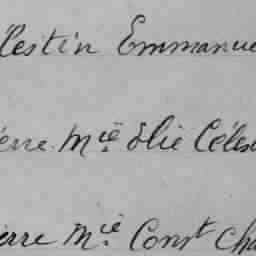 lestin Emmanue
erre Mie Élie Céles
erre Mie Const Cha